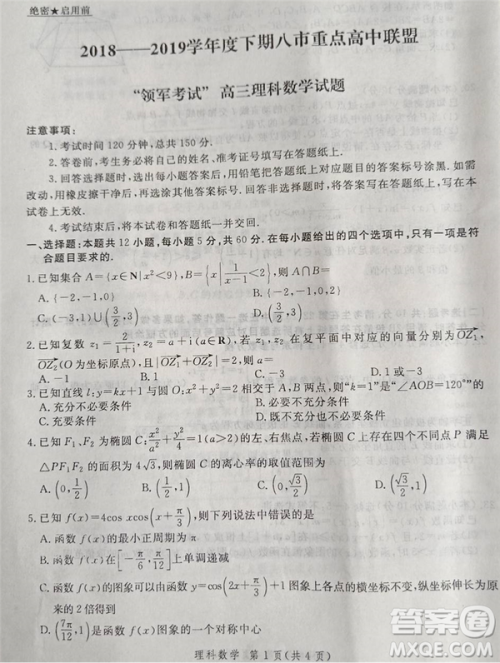 绝密★启用前
2018——2019学年度下期八市重点高中联盟
“领军考试” 高三理科数学试题
注意事项:
1.考试时间120分钟,总共150分.
2.答卷前,考生务必将姓名、准考证号填写在答题纸上.
3.回答选择题时,选出每小题答案后,用铅笔把答题纸上对应题目的答案标号涂黑.如需
改动,用橡皮擦干净后,再选涂其它答案标号.回答非选择题时,将答案写在答题纸上,写在本
试卷上无效.
4.考试结束后,将本试卷和答题纸一并交回.
一、选择题:本题共12小题,每小题5分,共60分.在每小题给出的四个选项中,只有一项是符
合题目要求的.
1.已知集合A={x∈N|x²<9},B={x|1/(2x-3)<1},则A∩B=
A.{-2,-1,0} B.{-2,-1,0,1}
C.(-3,1)∪(3/2,3) D.{0}
2.已知复数 z₁=2/(1+i),z₂=a+i(a∈R),若z₁,z₂在复平面中对应的向量分别为OZ₁,
OZ₂(O为坐标原点),且|OZ₁+OZ₂|=2,则a=
A.1 B.-3 C.1或-3 D.-1或3
3.已知直线l:y=kx+1与圆O:x²+y²=4相交于A,B两点,则“k=1”是“∠AOB=120°”的
A.充分不必要条件 B.必要不充分条件
C.充要条件 D.既不充分也不必要条件
4.已知F₁,F₂为椭圆C:x²/a²+y²/4=1(a>2)的左、右焦点,若椭圆C上存在四个不同点P满足
△PF₁F₂的面积为4√3,则椭圆C的离心率的取值范围为
A.(0,1/2) B.(1/2,1) C.(√3/2,1) D.(0,√3/2)
5.已知f(x)=4cos xcos(x+π/3),则下列说法中错误的是
A.函数f(x)的最小正周期为π
B.函数f(x)在[-π/6,π/12]上单调递减
C.函数f(x)的图象可以由函数y=cos(2x+π/3)+1图象上各点的横坐标不变,纵坐标伸长为原
来的2倍得到
D.(7π/12,1)是函数f(x)图象的一个对称中心
理科数学 第1页(共4页)